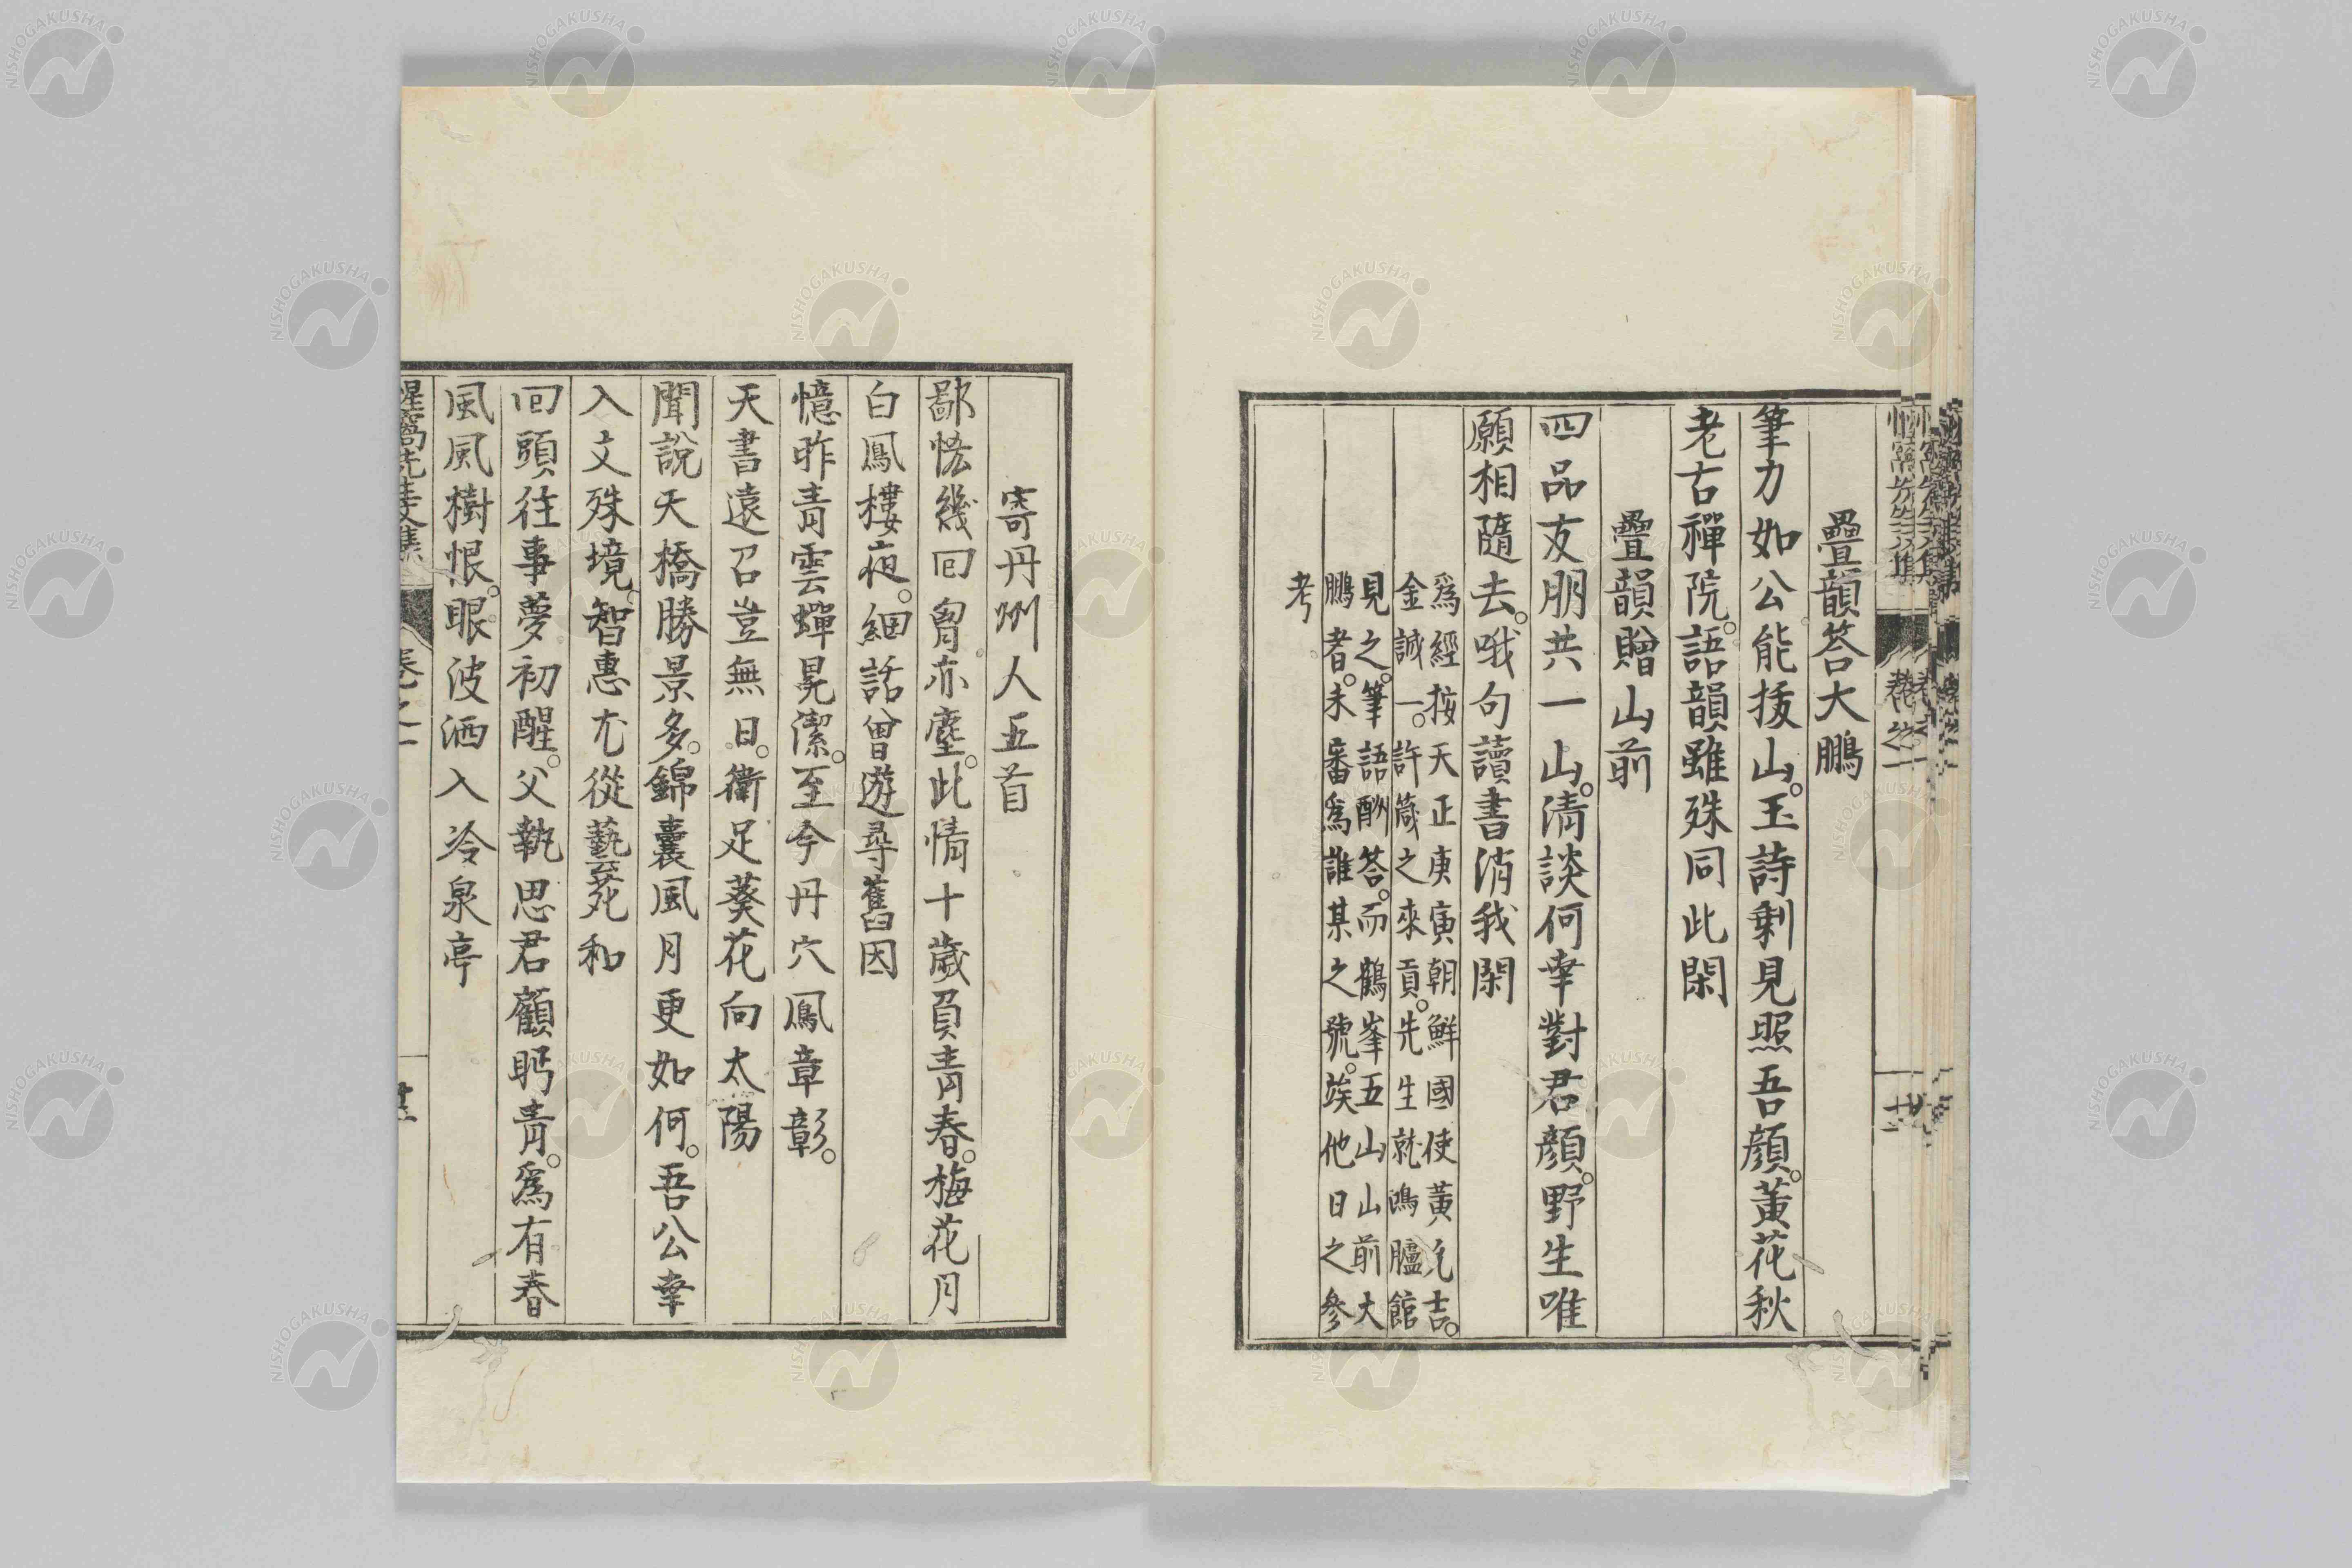 疊韻答大鵬
筆力如公能拔山。玉詩剩見照吾顔。黄花秋
老古禪院。語韻雖殊同此閑
疊韻贈山前
四品友朋共一山。清談何幸對君顔。野生唯
願相隨去。哦句讀書消我閑
爲經按天正庚寅朝鮮國使黄允吉。
金誠一。許筬之來貢。先生就鴻臚館
見之。筆語酬答。而鶴峯五山山前大
鵬者。未審爲誰某之號。竢他日之參
考
寄丹州人五首
鄙悋幾回胷亦塵。此情十歳負青春。梅花月
白鳳樓夜。細話曾遊尋舊因
憶昨青雲蟬晃潔。至今丹穴鳳章彰。
天書遠召豈無日。衞足葵花向太陽
聞説天橋勝景多。錦囊風月更如何。吾公幸
入文殊境。智惠尤從藝苑和
回頭往事夢初醒。父執思君顧眄青。爲有春
風風樹恨。眼波洒入冷泉亭
惺窩先生文集
卷之一
NISHOGAKUSHA